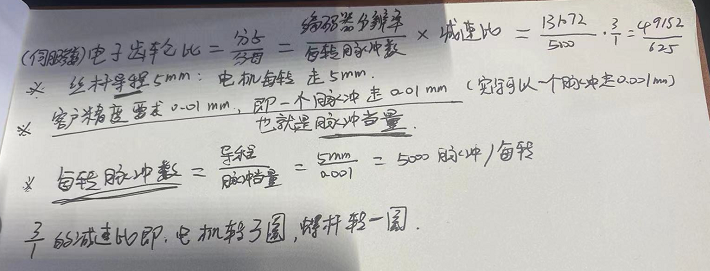 (伺服端) 电子齿轮比 = 分子/分母 = 编码器分辨率/每转脉冲数 × 减速比 = 131072/5000 · 3/1 = 49152/625
※ 丝杆导程5mm: 电机每转走5mm.
※ 客户精度要求0.01mm, 即一个脉冲走0.01mm (实际可以一个脉冲走0.001mm)
也就是脉冲当量.
※ 每转脉冲数 = 导程/脉冲当量 = 5mm/0.001 = 5000 脉冲/每转
3/1 的减速比即, 电机转3圈, 螺杆转一圈.